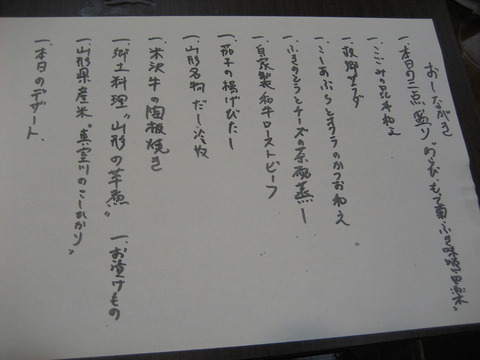 おしながき
一、本日の三点盛り "わらび、もって菊、ふき味噌田楽"
一、こごみの昆布和え
一、故郷サラダ
一、こしあぶらとオクラのかつお和え
一、ふきのとうとチーズの茶碗蒸し
一、自家製和牛ローストビーフ
一、茄子の揚げびたし
一、山形名物 だし冷奴
一、米沢牛の陶板焼き
一、郷土料理 "山形の芋煮" 一、お漬けもの
一、山形県産米 "真室川のこしひかり"
一、本日のデザート